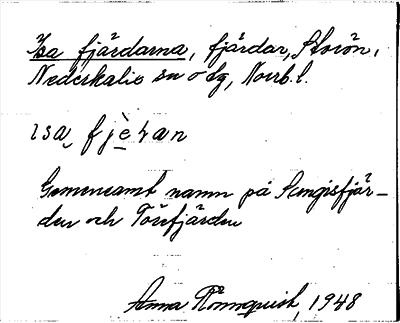 Isa fjärdarna, fjärdar, Storön,
Nederkalix sn o dg, Norrb. l.
ısa fjè̱ran
Gemensamt namn på Sangisfjär-
den och Törefjärden
Anna Rönnquist, 1948